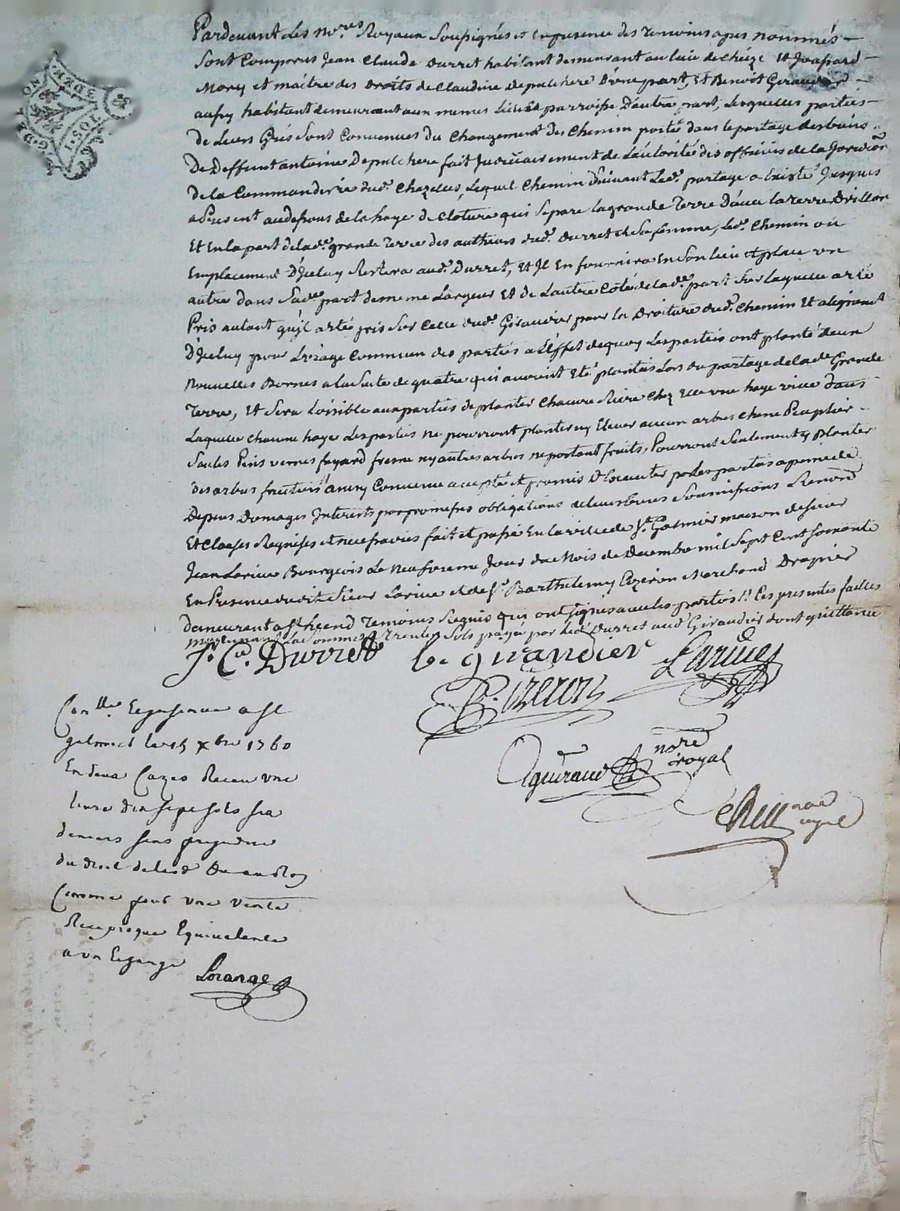 1 SOL
Pardevant Les nores Royaux Soussignés et En presence des Temoins apres nommés
Sont Comparus Jean Claude Durret habitant demeurant au lieu de
Mary et maître des Droits de Claudine Depulchere D'une part, Et Benoit Giraudier
aussy habitant demeurant aux memes Lieu parroisse D'autre part, Lesquelles parties
de Leurs Grés sont Convenues du Changement des Chemin porté dans le partage des biens
De Deffunt antoine Depulchere fait Judiciairement de L'autorité des officiers de la Jurisdion
de la Commanderie dud. Chazelles, Lequel Chemin Suivant Led. partage a Existé Jusques
a Present au dessous de la haye de Cloture qui Separe la grande Terre D'avec la terre
Et En la part de lad. grande Terre des autheurs dud. Durret et Sa femme, Led. Chemin ou
Emplacement D'Iceluy Restera aud. Durret, Et Il En fournira En Son lieu et place un
autre dans Sad. part de meme Largeur Et de L'autre Coté de lad. part Sur laquelle a eté
Pris autant qu'il a eté pris Sur Celle dud. Giraudier pour la Droiture dud. Chemin Et alignement
D'Iceluy pour L'uzage Commun des parties a L'Effet de quoy Les parties ont planté deux
Nouvelles Bornes a la Suite de quatre qui avoient Eté plantées Lors du partage de lad. Grande
Terre, Et Sera Loisible aux parties de planter Chacune Riere Chez Elle une haye vive dans
Laquelle Chacune haye Les parties ne pourront planter ny Elever aucun arbres Chene Peuplier
Saules Pins vernes fayard fresne ny autres arbres ne portant fruits, Pourront Seulement y planter
des arbres fruitiers ainsy Convenu accepté et promis D'Executer par les parties a peine de
Depens Domages Interets par promesses obligations de leurs biens Soumissions Renonc
Et Clauses Requises et necessaires fait et passé En la ville de St. Galmier maison de Sieur
Jean Larive Bourgeois Le neufvieme Jour du Mois de Decembre mil Sept Cent Soixante
En Presence dudit Sieur Larive et de Sr. Barthelemy Cizeron Marchand Drapier
demeurant a St. Temoins Requis qui ont signés avec les parties // Ces presentes faittes
moyennant La Somme de Trente Sols payée par led. Durret aud. Giraudier dont quittance
J. C. Durret be girandier Larive
Cizeron
guiraud nore royal
nore royal
Conllé Et a St
galmier le 15 xbre 1760
En deux Cazes Receu une
livre dix sept sols six
deniers sans prejudice
du droit de
Comme pour une vente
Reciproque Equivalente
a un Echange Lorange